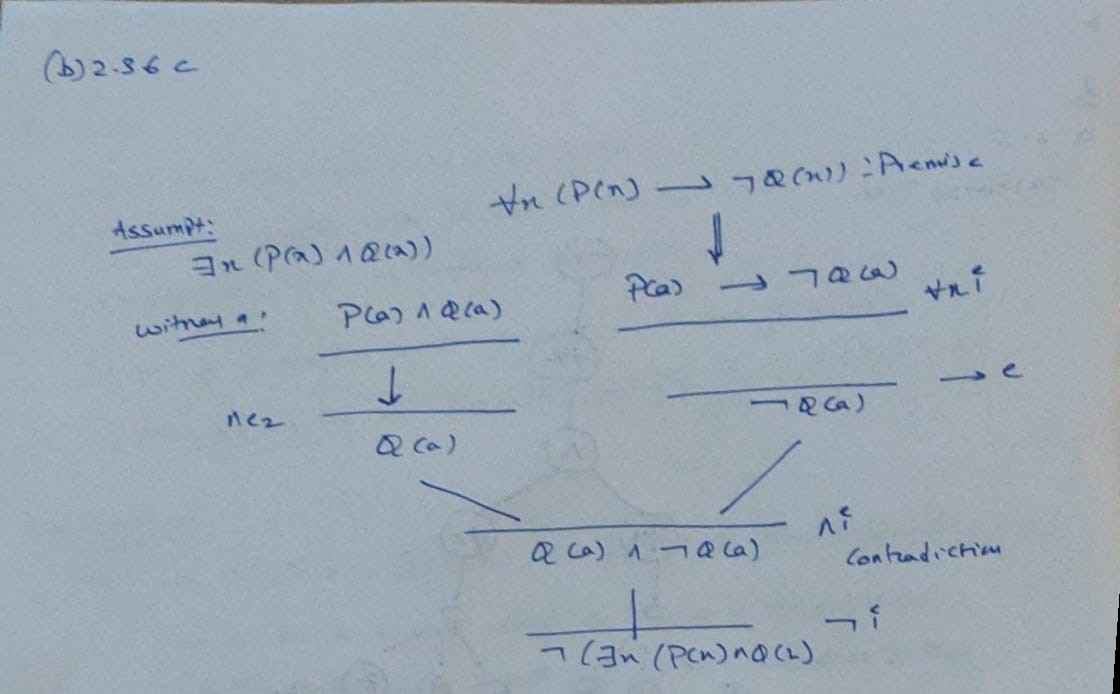 (b) 2.36 c
∀x (P(x) → ¬Q(x)) : Premise
Assumpt:
∃x (P(x) ∧ Q(x))
P(a) → ¬Q(a) ∀x i
witness a: P(a) ∧ Q(a)
→ e
¬Q(a)
∧e2
Q(a)
Q(a) ∧ ¬Q(a) ∧i
Contradiction
¬i
¬(∃x (P(x) ∧ Q(x)